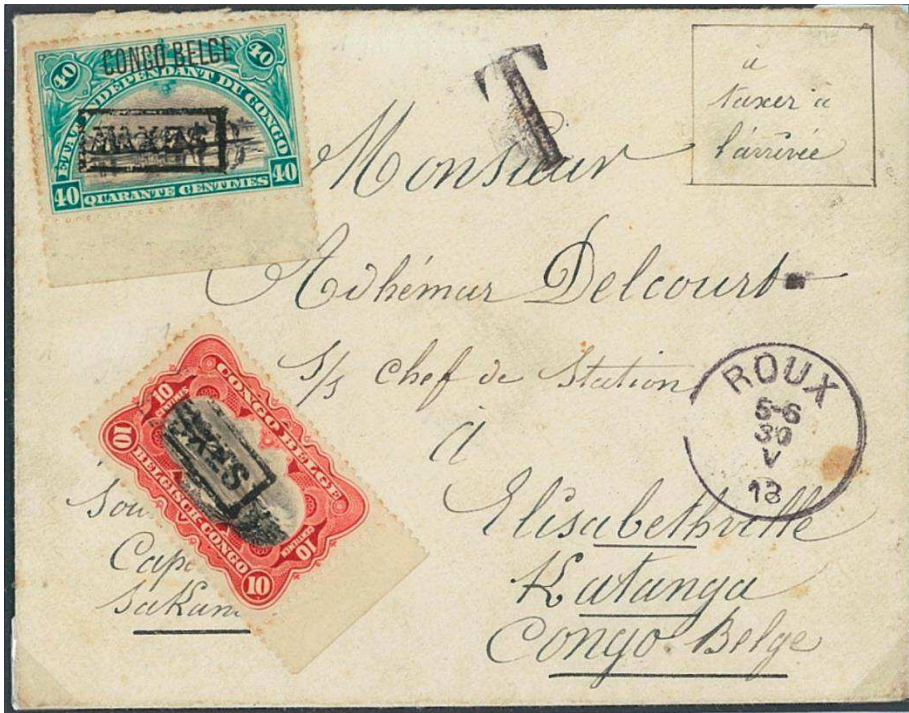 40 CONGO BELGE 40
ETAT INDEPENDANT DU CONGO
TAXES
40 QUARANTE CENTIMES 40
T
à
taxer à
l'arrivée
Monsieur
Adhémar Delcourt
s/s chef de Station
à
Elisabethville
Katanga
Congo Belge
ROUX
5-6
30
V
13
10 CENTIMES
CONGO BELGE
01
TAXES
BELGISCH-CONGO
10 CENTIEM
01
Cape